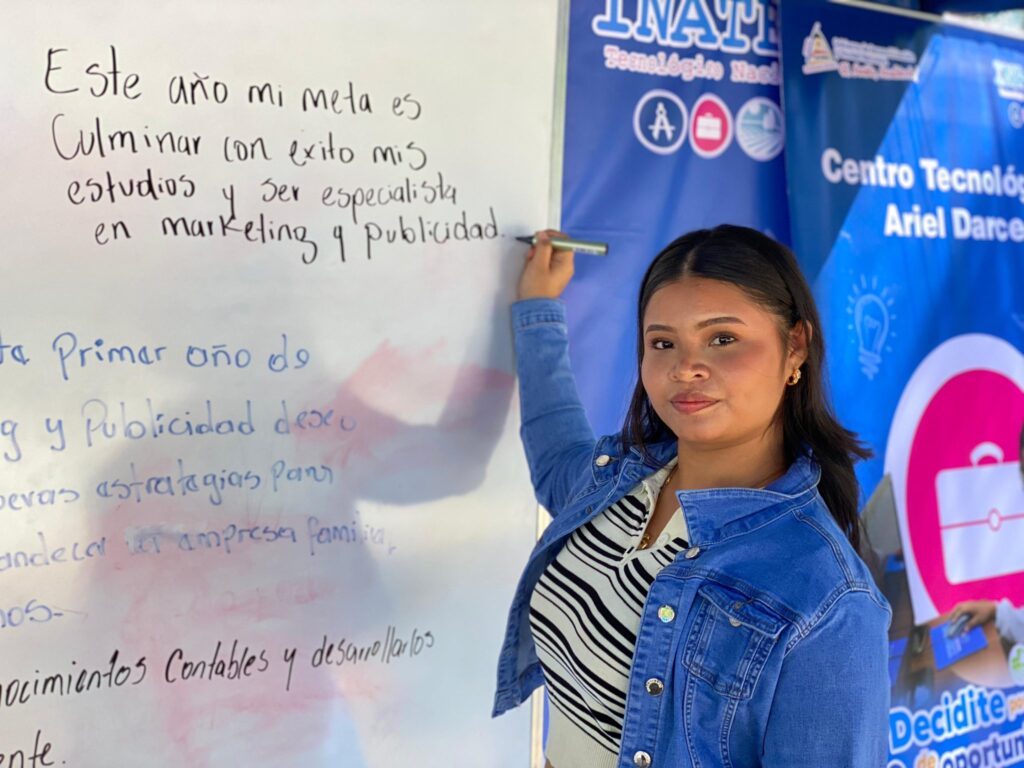 Este año mi meta es
Culminar con exito mis
estudios y ser especialista
en marketing y publicidad.
Primar año de
y Publicidad deseo
astratagias para
ampresa familia,
Contables y desarrollarlos
INATE
Tecnológico Nac
Centro Tecnológ
Ariel Darce
Decidite
de oportuni